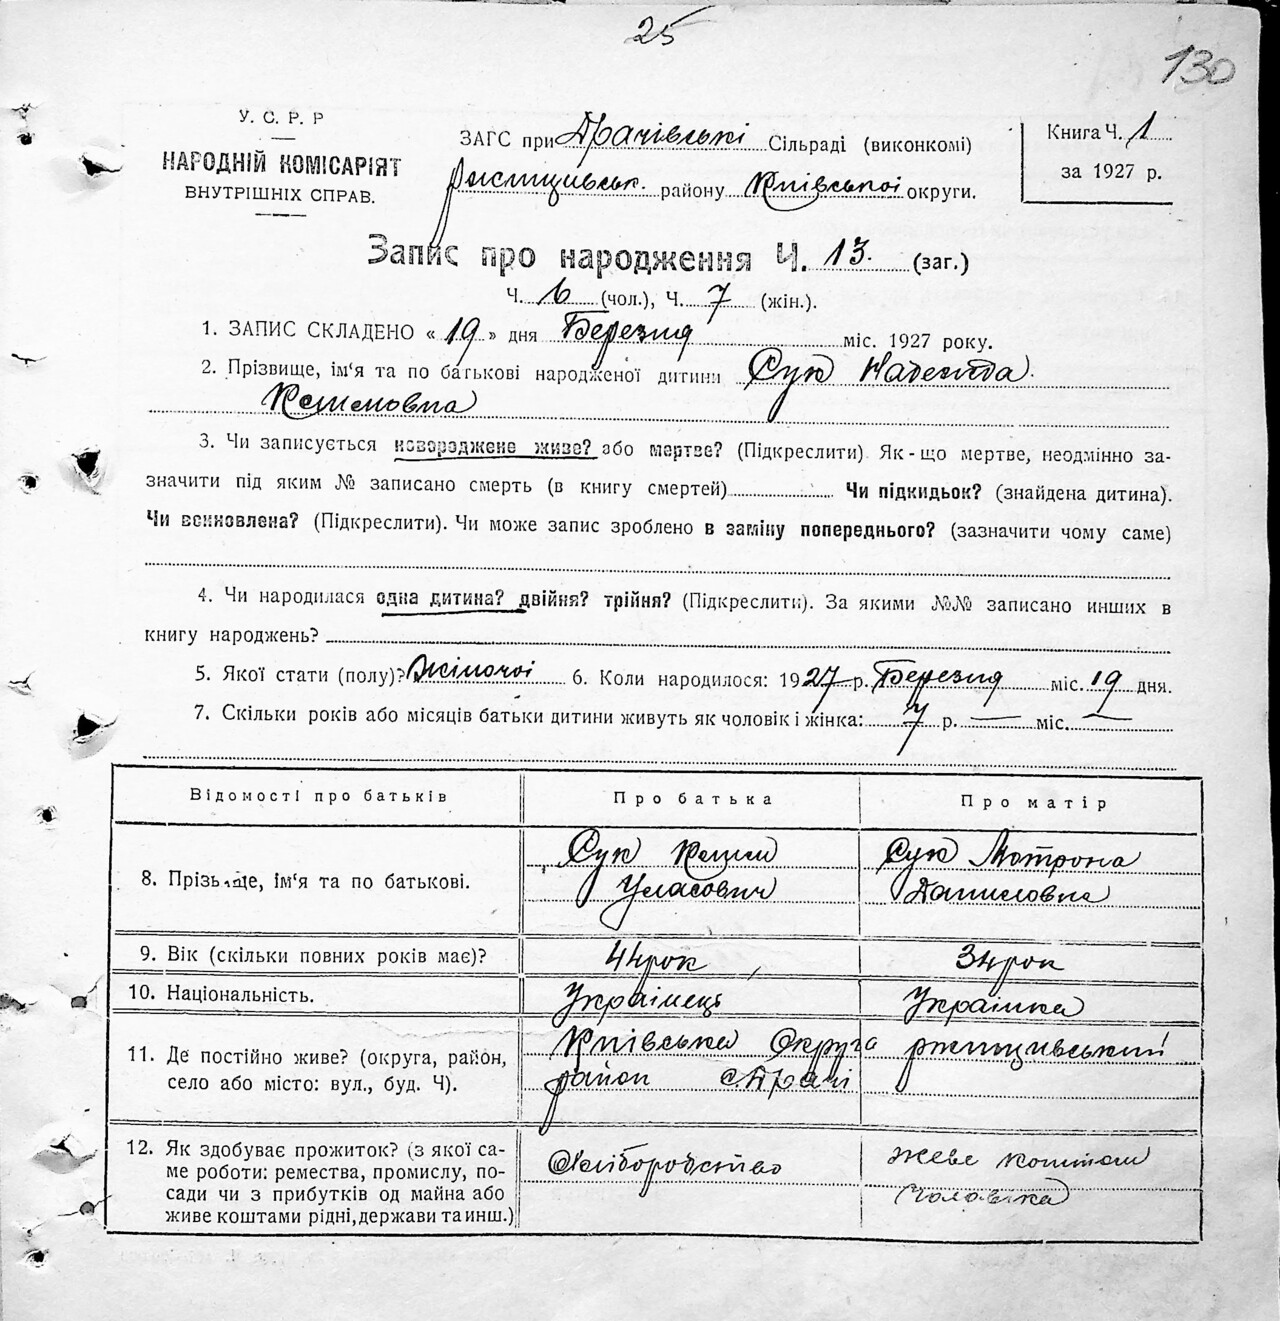 25
130
У. С. Р. Р
НАРОДНІЙ КОМІСАРІЯТ
ВНУТРІШНІХ СПРАВ.
ЗАГС при Драчівські Сільраді (виконкомі)
району Київської округи.
Книга Ч. 1
за 1927 р.
Запис про народження Ч. 13. (заг.)
Ч. 6 (чол.), Ч. 7 (жін.).
1. ЗАПИС СКЛАДЕНО « 19 » дня Березня міс. 1927 року.
2. Прізвище, ім'я та по батькові народженої дитини Сук Надежда
3. Чи записується новороджене живе? або мертве? (Підкреслити) Як-що мертве, неодмінно за-
значити під яким № записано смерть (в книгу смертей) Чи підкидьок? (знайдена дитина).
Чи вснновлена? (Підкреслити). Чи може запис зроблено в заміну попереднього? (зазначити чому саме)
4. Чи народилася одна дитина? двійня? трійня? (Підкреслити). За якими №№ записано инших в
книгу народжень?
5. Якої стати (полу)? Жіночої 6. Коли народилося: 1927 р. Березня міс. 19 дня.
7. Скільки років або місяців батьки дитини живуть як чоловік і жінка: 7 р. — міс. —
Відомості про батьків Про батька Про матір
8. Прізьище, ім'я та по батькові.
Сук
Уласович
Сук Мотрона
Даниловна
9. Вік (скільки повних років має)? 44 рок 34 рок
10. Національність. Українець Українка
11. Де постійно живе? (округа, район,
село або місто: вул., буд. Ч).
Київська Округа ржищивський
район с. Драчі
12. Як здобуває прожиток? (з якої са-
ме роботи: ремества, промислу, по-
сади чи з прибутків од майна або
живе коштами рідні, держави та инш.)
Хліборобство
живе коштом
чоловіка